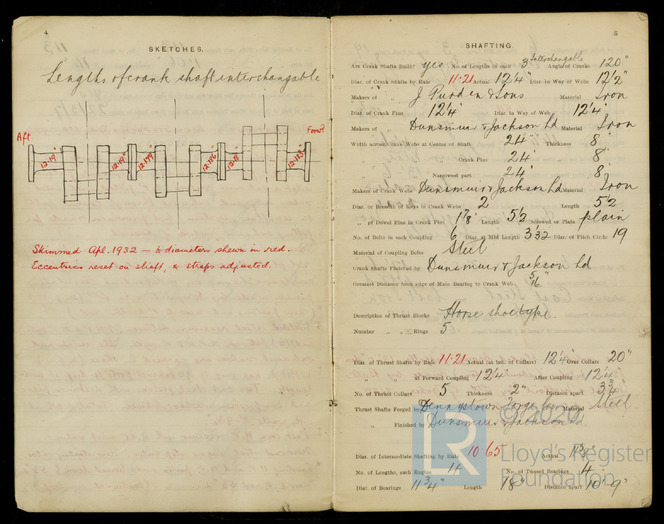 4
SKETCHES.
Lengths of crank shaft interchangable
Aft.
Forwd
12·19"
12·19"
12·179"
12·186"
12·18"
12·183"
Skimmed Apl. 1932 — & diameters shewn in red.
Eccentrics reset on shaft, & straps adjusted.
5
SHAFTING.
Are Crank Shafts Built? yes No. of Lengths in each 3 Interchangable Angle of Cranks 120°
Diar. of Crank Shafts by Rule 11·21 Actual 12¼" Diar. in Way of Webs 12½"
Makers of " " J Purden & Sons Material Iron
Diar. of Crank Pins 12¼" Diar. in Way of Webs 12¼"
Makers of " Dunsmuir & Jackson Ld Material Iron
Width across Crank Webs at Centre of Shaft 24" Thickness 8"
" " " " Crank Pins 24" " 8"
" " " " Narrowest part 24" " 8"
Makers of Crank Webs Dunsmuir & Jackson Ld Material Iron
Diar. or Breadth of Keys in Crank Webs 2 Length 5½
" of Dowel Pins in Crank Pins 1⅞" Length 5½ Screwed or Plain plain
No. of Bolts in each Coupling 6 Diar. at Mid Length 3 Diar. of Pitch Circle 19
Material of Coupling Bolts Steel
Crank Shafts Finished by Dunsmuir & Jackson Ld
Greatest Distance from edge of Main Bearing to Crank Web 5/16"
Description of Thrust Blocks Horse shoe type.
Number " " Rings 5
Diar. of Thrust Shafts by Rule 11·21 Actual (at bot. of Collars) 12¼" Over Collars 20"
" " at Forward Coupling 12¼" After Coupling 12¼"
No. of Thrust Collars 5 Thickness 2" Distance apart 3¾"
Thrust Shafts Forged by Dennystown Forge Material Steel
" Finished by Dunsmuir & Jackson Ld
Diar. of Intermediate Shafting by Rule 10·65 Actual
No. of Lengths, each Engine No. of Tunnel Bearings 4
Diar. of Bearings 11¾" Length 18" Distance apart 10'-9"
© 2020
LR
Lloyd's Register
Foundation